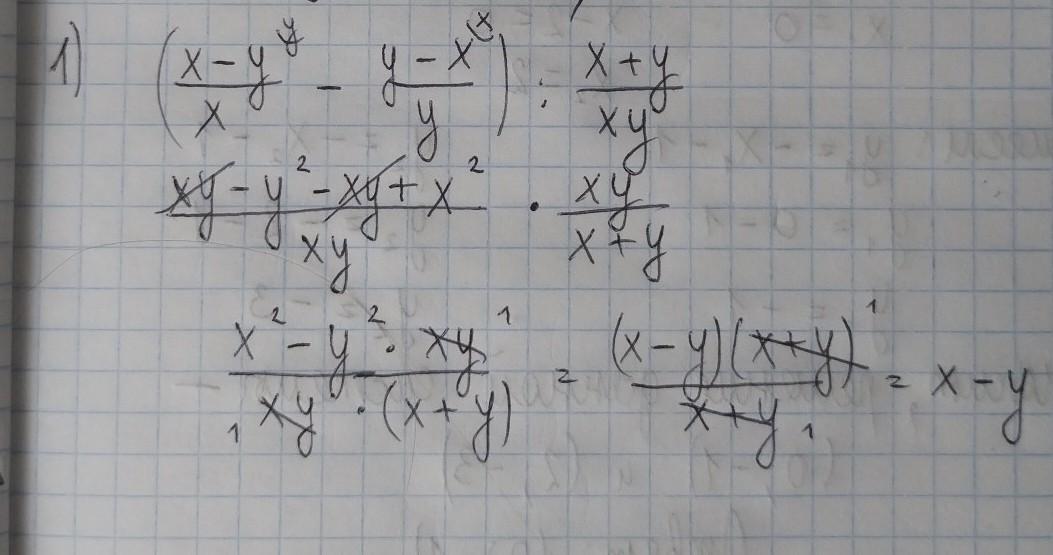 1) ((x - y)/x ^y - (y - x)/y ^(x) ) : (x + y)/(xy)
(xy - y² - xy + x²)/(xy) · (xy)/(x + y)
(x² - y² · xy ¹)/(₁ xy · (x + y)) = ((x - y)(x + y) ¹)/(x + y ₁) = x - y